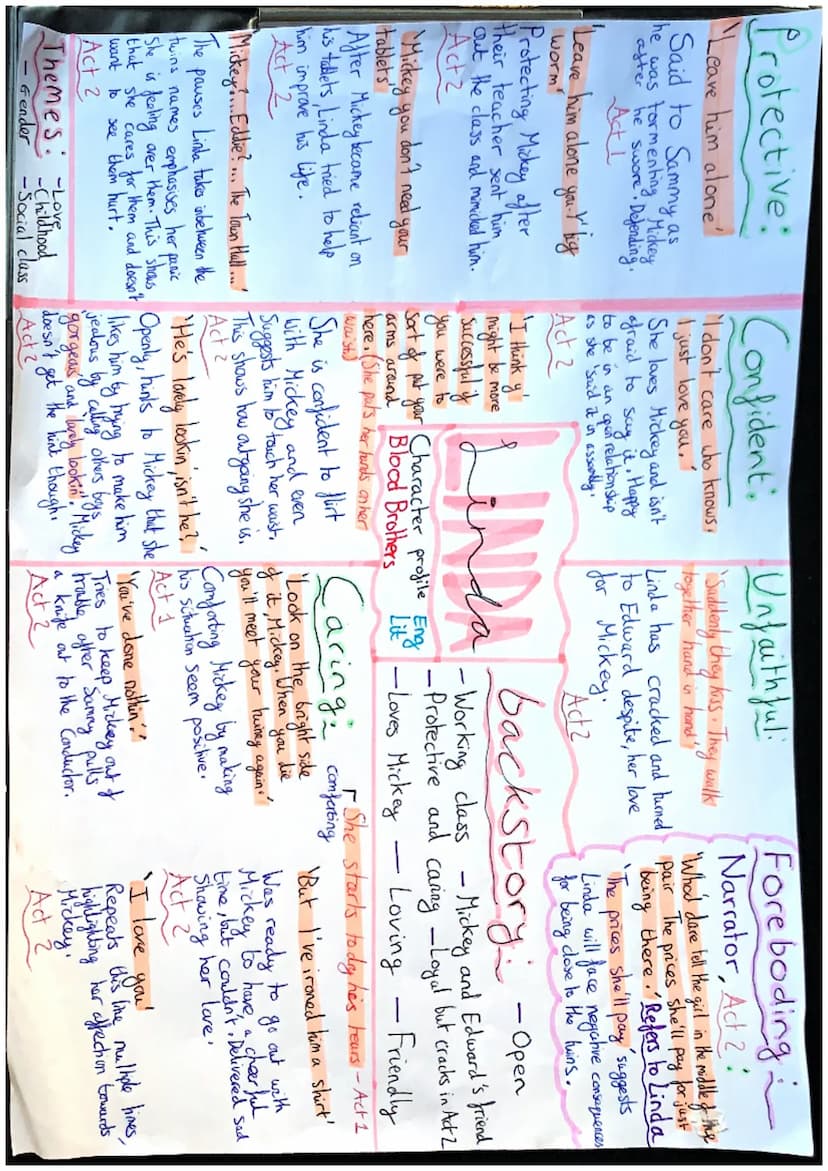 Protective:
'Leave him alone'
Said to Sammy as
he was tormenting Mickey
after he swore. Defending.
Act 1
'Leave him alone you big
worm'
Protecting Mickey after
their teacher sent him
out the class and mimicked him.
Act 2
'Mickey you don't need your
tablets'
After Mickey became reliant on
his tablets, Linda tried to help
him improve his life.
Act 2
'Mickey?...Eddie?... The Town Hall...'
The pauses Linda take inbetween the
twins names emphasises her panic
She is feeling over them. This shows
that she cares for them and doesn't
want to see them hurt.
Act 2
Themes: -Love
- Gender -Childhood
-Social class
Confident:
'I don't care who knows.
I just love you.'
She loves Mickey and isn't
afraid to say it. Happy
to be in an open relationship
as she said it in assembly.
Act 2
'I think y'
might be more
successful if
you were to
sort of put your
arms around
here. (She puts her hands on her
waist)
She is confident to flirt
with Mickey and even
Suggests him to touch her waist.
This shows how outgoing she is.
Act 2
'He's lovely lookin' isn't he?'
Openly, hints to Mickey that she
likes him by trying to make him
jealous by calling others boys
gorgeous and lovely lookin'. Mickey
doesn't get the hint though.
Act 2
LINDA
Linda
Character profile Eng
Blood Brothers Lit
Unfaithful:
'Suddenly they kiss. They walk
together hand in hand'
Linda has cracked and turned
to Edward despite, her love
for Mickey.
Act 2
Foreboding:
Narrator, Act 2:
'What dare tell the girl in the middle of the
pair The prices she'll pay for just
being there.' Refers to Linda
'The prices she'll pay' suggests
Linda will face negative consequences
for being close to the twins.
backstory: - Open
- Working class - Mickey and Edward's friend
- Protective and caring - Loyal but cracks in Act 2
- Loves Mickey - Loving - Friendly
Caring: comforting
She starts to dry his tears - Act 1
'Look on the bright side
of it, Mickey. When you die
you'll meet your twiney again.'
Comforting Mickey by making
his situation seem positive.
Act 1
'You've done nothin'!'
Tries to keep Mickey out of
trouble after Sammy pulls
a knife out to the Conductor.
Act 2
'But I've ironed him a shirt'
Was ready to go out with
Mickey to have a cheerful
time, but couldn't. Delivered sad
Showing her love.
Act 2
'I love you'
Repeats this line multiple times,
highlighting her affection towards
Mickey.
Act 2